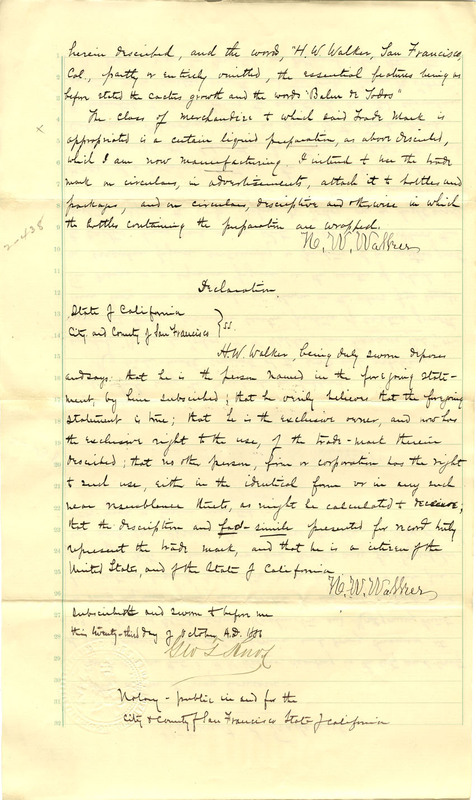 herein described, and the words, "H. W. Walker, San Francisco,
Cal., partly or entirely omitted, the essential features being as
before stated the cactus growth and the words "Balm de Todos"
The class of merchandize to which said Trade Mark is
appropriated is a certain liquid preparation, as above described,
which I am now manufacturing. I intend to use the trade
mark on circulars, in advertisements, attach it to bottles and
packages, and on circulars, descriptive and otherwise in which
the bottles containing the preparation are wrapped.
H. W. Walker
x
2-438
Declaration
State of California
City and County of San Francisco } SS.
H. W. Walker, being duly sworn deposes
and says: that he is the person named in the foregoing state-
ment, by him subscribed; that he verily believes that the foregoing
statement is true; that he is the exclusive owner, and now has
the exclusive right to the use, of the trade-mark therein
described; that no other person, firm or corporation has the right
to such use, either in the identical form or in any such
near resemblance thereto, as might be calculated to deceive;
that the description and fac-simile presented for record truly
represent the trade mark, and that he is a citizen of the
United States, and of the State of California
H. W. Walker
Subscribed and sworn to before me
this twenty-third day of October A.D.
Geo T Knox
Notary-public in and for the
City & County of San Francisco State of California